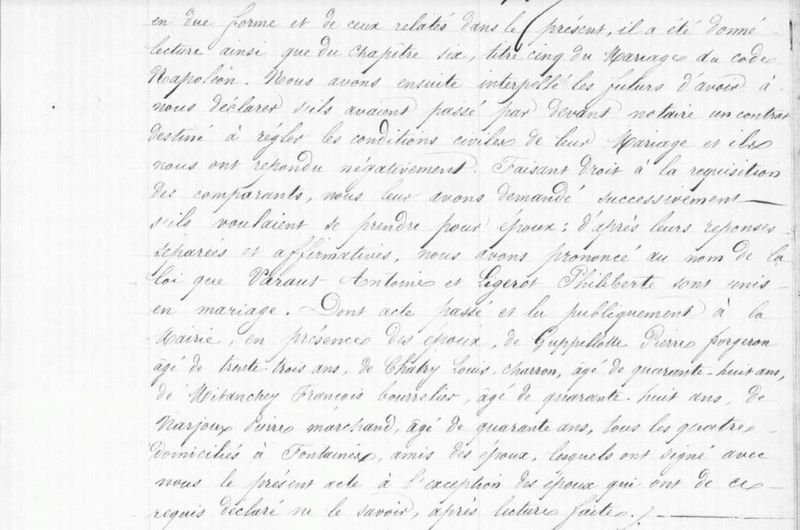 en due forme et de ceux relatés dans le présent, il a été donné
lecture ainsi que du chapitre six, titre cinq du Mariage du code
Napoléon. Nous avons ensuite interpellé les futurs d'avoir à
nous déclarer s'ils avaient passé par devant notaire un contrat
destiné à régler les conditions civiles de leur Mariage et ils
nous ont repondu négativement. Faisant droit à la requisition
des comparants, nous leur avons demandé successivement
s'ils voulaient se prendre pour époux; d'après leurs reponses
séparées et affirmatives, nous avons prononcé au nom de la
loi que Varaut Antoine et Ligerot Philiberte sont unis
en mariage. Dont acte passé et lu publiquement à la
Mairie, en présence des époux, de Guppillotte Pierre forgeron
âgé de trente-trois ans, de Chatry Louis charron, âgé de quarante-huit ans,
de Mitanchey François bourrelier, âgé de quarante-huit ans, de
Narjoux Pierre marchand, âgé de quarante ans, tous les quatre
domiciliés à Fontaines, amis des époux, lesquels ont signé avec
nous le présent acte à l'exception des époux qui ont de ce
requis déclaré ne le savoir, après lecture faite./